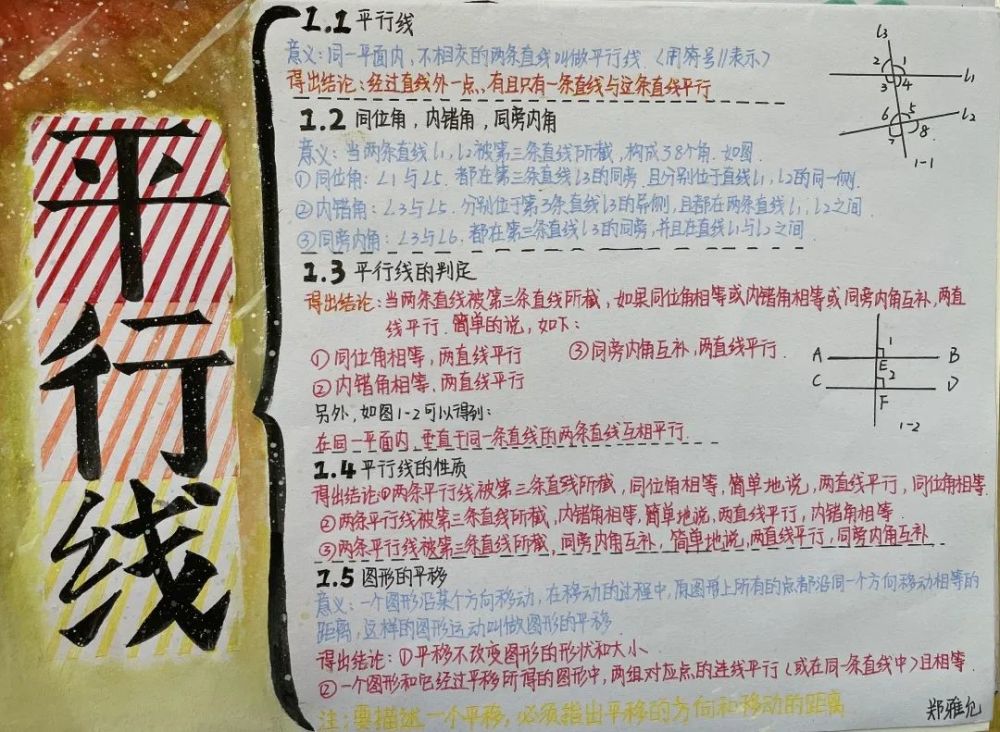 平行线
1.1 平行线
意义：同一平面内，不相交的两条直线叫做平行线.（用符号//表示）
得出结论：经过直线外一点、有且只有一条直线与这条直线平行
1.2 同位角，内错角，同旁内角
意义：当两条直线l1，l2被第三条直线所截，构成38个角.如图.
①同位角：∠1与∠5. 都在第三条直线l3的同旁，且分别位于直线l1，l2的同一侧.
②内错角：∠3与∠5. 分别位于第3条直线l3的异侧，且都在两条直线l1，l2之间.
③同旁内角：∠3与∠6. 都在第三条直线l3的同旁，并且在直线l1与l2之间.
l3
2 1
l1
3 4
6 5
l2
7 8
1-1
1.3 平行线的判定
得出结论：当两条直线被第三条直线所截，如果同位角相等或内错角相等或同旁内角互补，两直
线平行. 简单的说，如下：
①同位角相等，两直线平行
③同旁内角互补，两直线平行.
②内错角相等，两直线平行
另外，如图1-2可以得到：
在同一平面内，垂直于同一条直线的两条直线互相平行.
1
A E B
2
C F D
1-2
1.4 平行线的性质
得出结论①两条平行线被第三条直线所截，同位角相等，简单地说，两直线平行，同位角相等.
②两条平行线被第三条直线所截，内错角相等，简单地说，两直线平行，内错角相等.
③两条平行线被第三条直线所截，同旁内角互补，简单地说，两直线平行，同旁内角互补
1.5 图形的平移
意义：一个图形沿某个方向移动，在移动的过程中，原图形上所有的点都沿同一个方向移动相等的
距离，这样的图形运动叫做图形的平移.
得出结论：①平移不改变图形的形状和大小.
②一个图形和它经过平移所得的图形中，两组对应点的连线平行（或在同一条直线中）且相等.
注：要描述一个平移，必须指出平移的方向和移动的距离
郑雅允